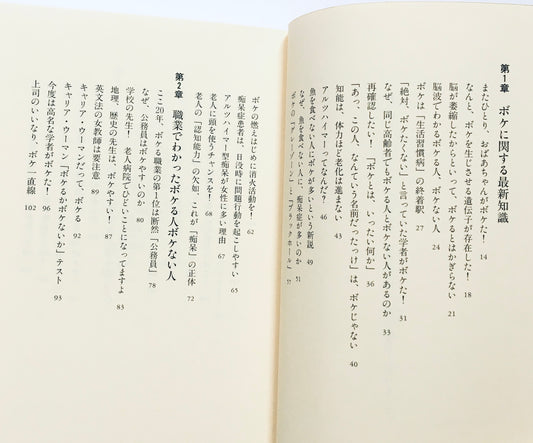 第1章 ボケに関する最新知識
またひとり、おばあちゃんがボケた! 14
なんと、ボケを生じさせる遺伝子が存在した! 18
脳が萎縮したからといって、ボケるとはかぎらない 21
脳波でわかるボケる人、ボケない人 24
ボケは「生活習慣病」の終着駅 27
「絶対、ボケたくない」と言っていた学者がボケた! 31
なぜ、同じ高齢者でもボケる人とボケない人があるのか 33
再確認したい!「ボケとは、いったい何か」 36
「あっ、この人、なんていう名前だったっけ」は、ボケじゃない 40
知能は、体力ほど老化は進まない 43
アルツハイマーってなんだ? 46
魚を食べない人にボケが多いという新説 49
なぜ、魚を食べない人に、痴呆症が多いのか 51
ボケの「グレーゾーン」と「ブラックホール」 57
ボケの燃えはじめに消火活動を! 62
痴呆症患者は、日没時に問題行動を起こしやすい 65
アルツハイマー型痴呆が女性に多い理由 67
老人に頭を使うチャンスを! 68
老人の「認知能力」の欠如、これが「痴呆」の正体 72
第2章 職業でわかったボケる人ボケない人
ここ20年、ボケる職業の第1位は断然「公務員」 78
なぜ、公務員はボケやすいのか 80
学校の先生! 老人病院でひどいことになってますよ 83
地理、歴史の先生は、ボケやすい! 87
英文法の女教師は要注意 89
キャリア・ウーマンだって、ボケる 92
キャリア・ウーマン「ボケるかボケないか」テスト 93
今度は高名な学者がボケた! 96
上司のいいなり、ボケ一直線 102